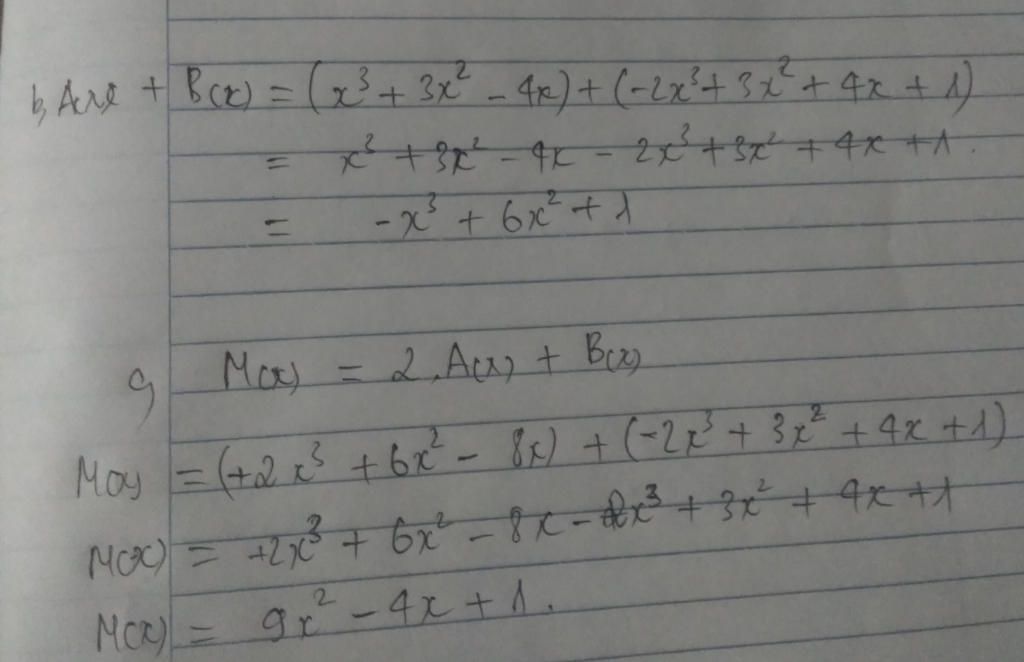 b, A(x) + B(x) = (x³ + 3x² - 4x) + (-2x³ + 3x² + 4x + 1)
= x³ + 3x² - 4x - 2x³ + 3x² + 4x + 1.
= -x³ + 6x² + 1
c, M(x) = 2.A(x) + B(x)
M(x) = (+2x³ + 6x² - 8x) + (-2x³ + 3x² + 4x + 1)
M(x) = +2x³ + 6x² - 8x - 2x³ + 3x² + 4x + 1
M(x) = 9x² - 4x + 1.